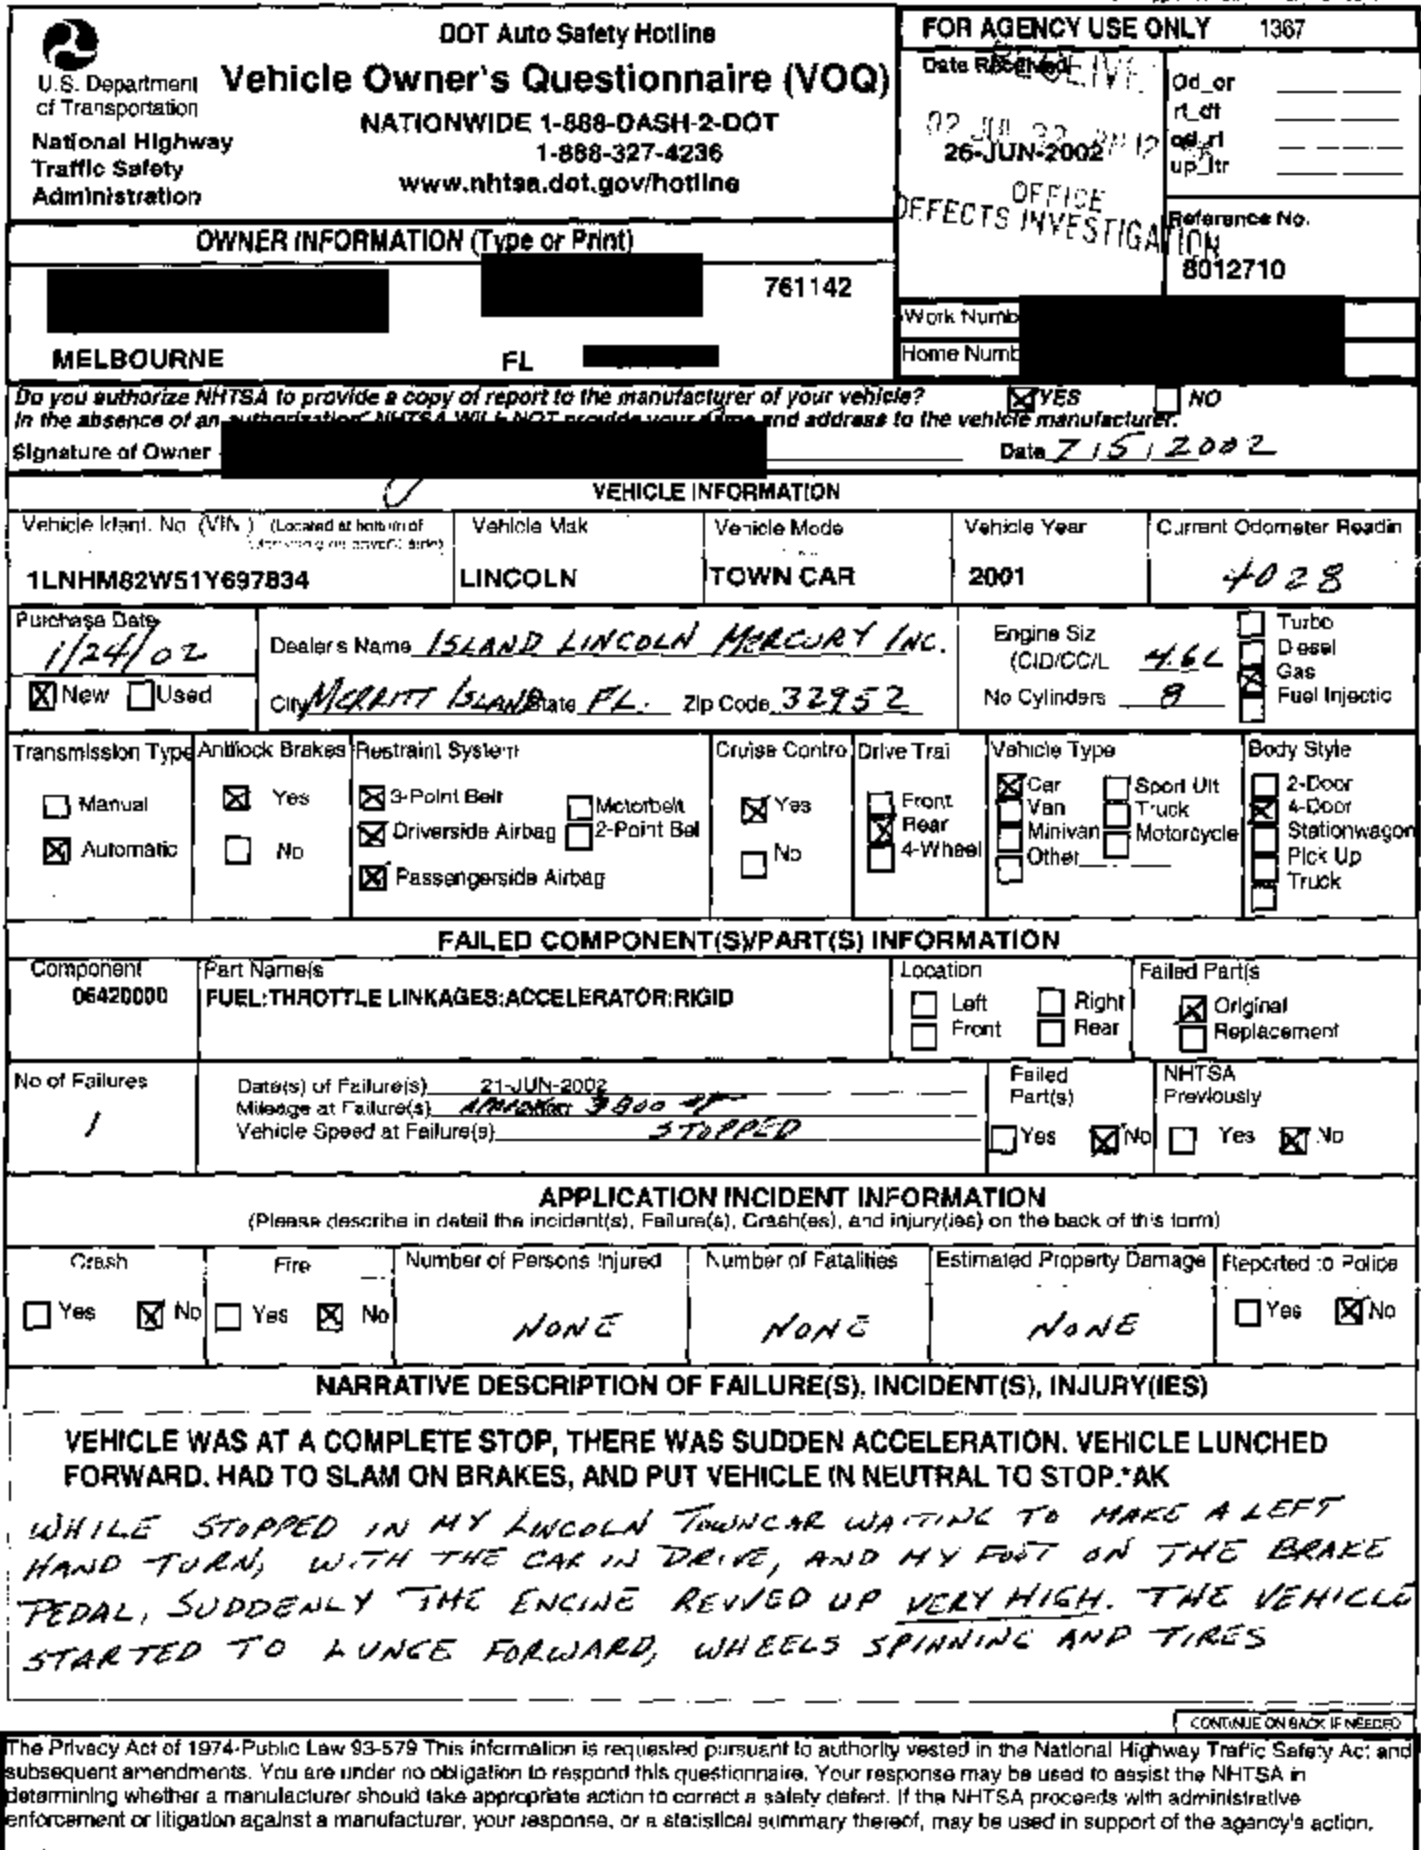 DOT Auto Safety Hotline
Vehicle Owner's Questionnaire (VOQ)
NATIONWIDE 1-888-DASH-2-DOT
1-888-327-4236
www.nhtsa.dot.gov/hotline
U.S. Department
of Transportation
National Highway
Traffic Safety
Administration
FOR AGENCY USE ONLY 1367
Date Received
26-JUN-2002
OFFICE
DEFECTS INVESTIGATION
Od_or
rt_dt
od_rt
up_ltr
Reference No.
8012710
OWNER INFORMATION (Type or Print)
761142
MELBOURNE FL
Work Numb
Home Numb
Do you authorize NHTSA to provide a copy of report to the manufacturer of your vehicle? YES NO
In the absence of an authorization, NHTSA WILL NOT provide your name and address to the vehicle manufacturer.
Signature of Owner Date 7/5/2002
VEHICLE INFORMATION
Vehicle Ident. No. (VIN.) (Located at bottom of Vehicle Mak Vehicle Mode Vehicle Year Current Odometer Readin
1LNHM82W51Y697834 LINCOLN TOWN CAR 2001 4028
Purchase Date
1/24/02
New Used
Dealer's Name ISLAND LINCOLN MERCURY INC.
City MERRITT ISLAND State FL. Zip Code 32952
Engine Siz
(CID/CC/L 4.6L
No Cylinders 8
Turbo
Diesel
Gas
Fuel Injectic
Transmission Type
Manual
Automatic
Antilock Brakes
Yes
No
Restraint System
3-Point Belt Motorbelt
Driverside Airbag 2-Point Bel
Passengerside Airbag
Cruise Contro
Yes
No
Drive Trai
Front
Rear
4-Wheel
Vehicle Type
Car Sport Ult
Van Truck
Minivan Motorcycle
Other
Body Style
2-Door
4-Door
Stationwagon
Pick Up
Truck
FAILED COMPONENT(S)/PART(S) INFORMATION
Component
06420000
Part Name/s
FUEL:THROTTLE LINKAGES:ACCELERATOR:RIGID
Location
Left Right
Front Rear
Failed Part(s
Original
Replacement
No of Failures
1
Date(s) of Failure(s) 21-JUN-2002
Mileage at Failure(s) 3800
Vehicle Speed at Failure(s) STOPPED
Failed
Part(s)
Yes No
NHTSA
Previously
Yes No
APPLICATION INCIDENT INFORMATION
(Please describe in detail the incident(s), Failure(s), Crash(es), and injury(ies) on the back of this form)
Crash Fire Number of Persons Injured Number of Fatalities Estimated Property Damage Reported to Police
Yes No Yes No NONE NONE NONE Yes No
NARRATIVE DESCRIPTION OF FAILURE(S), INCIDENT(S), INJURY(IES)
VEHICLE WAS AT A COMPLETE STOP, THERE WAS SUDDEN ACCELERATION. VEHICLE LUNCHED
FORWARD. HAD TO SLAM ON BRAKES, AND PUT VEHICLE IN NEUTRAL TO STOP.*AK
WHILE STOPPED IN MY LINCOLN TOWNCAR WAITING TO MAKE A LEFT
HAND TURN, WITH THE CAR IN DRIVE, AND MY FOOT ON THE BRAKE
PEDAL, SUDDENLY THE ENGINE REVVED UP VERY HIGH. THE VEHICLE
STARTED TO LUNGE FORWARD, WHEELS SPINNING AND TIRES
CONTINUE ON BACK IF NEEDED
The Privacy Act of 1974-Public Law 93-579 This information is requested pursuant to authority vested in the National Highway Traffic Safety Act and
subsequent amendments. You are under no obligation to respond this questionnaire. Your response may be used to assist the NHTSA in
determining whether a manufacturer should take appropriate action to correct a safety defect. If the NHTSA proceeds with administrative
enforcement or litigation against a manufacturer, your response, or a statistical summary thereof, may be used in support of the agency's action.